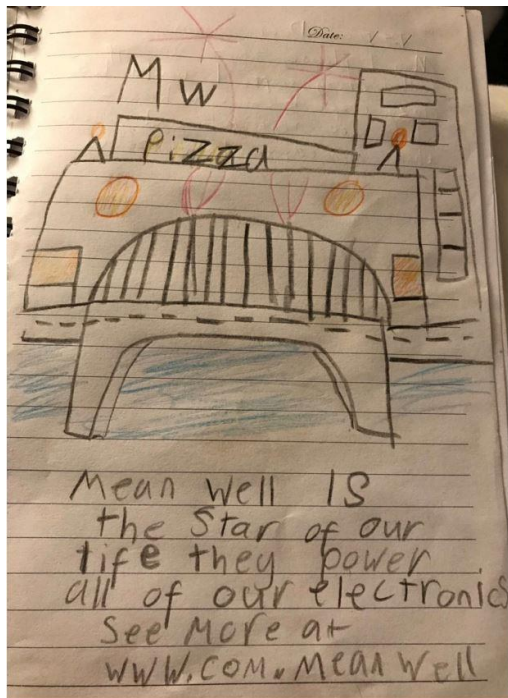 Date: / /
Mw
Pizza
Mean Well IS
the Star of our
life they power
all of our electronics
See More at
WWW.COM.Mean Well